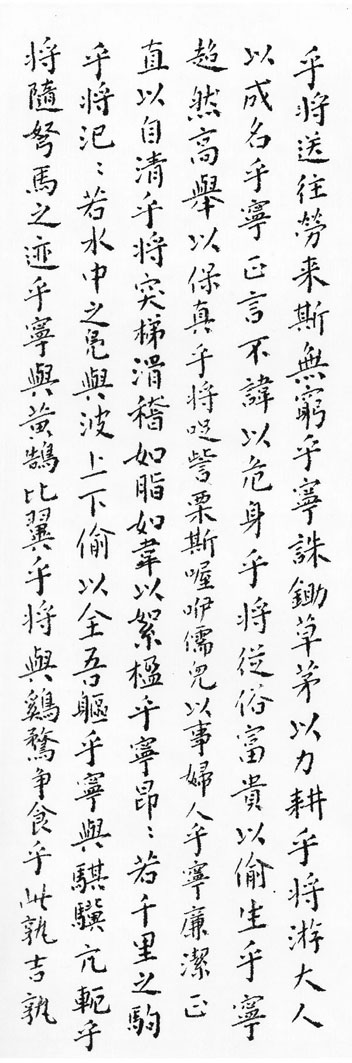 乎將送往勞来斯無窮乎寧誅鋤草茅以力耕乎將游大人
以成名乎寧正言不諱以危身乎將從俗富貴以偷生乎寧
超然高舉以保真乎將哫訾栗斯喔咿儒兒以事婦人乎寧廉潔正
直以自清乎將突梯滑稽如脂如韋以絜楹乎寧昂〻若千里之駒
乎將氾〻若水中之鳧與波上下偷以全吾軀乎寧與騏驥亢軛乎
將隨駑馬之迹乎寧與黃鵠比翼乎將與鷄鶩争食乎此孰吉孰